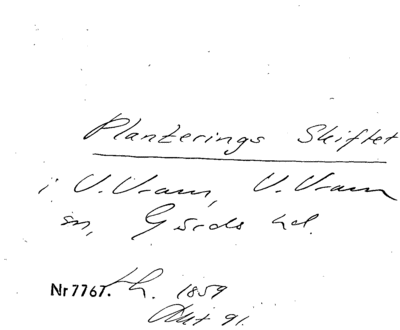 Planterings Skiftet
i V. Vram, V. Vram
sn, Gärds hd.
Nr 7767. Lh. 1859
Okt 91.